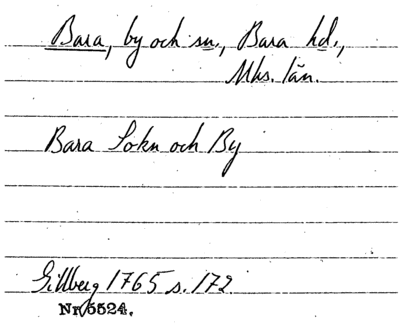 Bara, by och sn., Bara hd.,
Mhs. län.
Bara Sokn och By
Gillberg 1765 s. 172
Nr 5524.